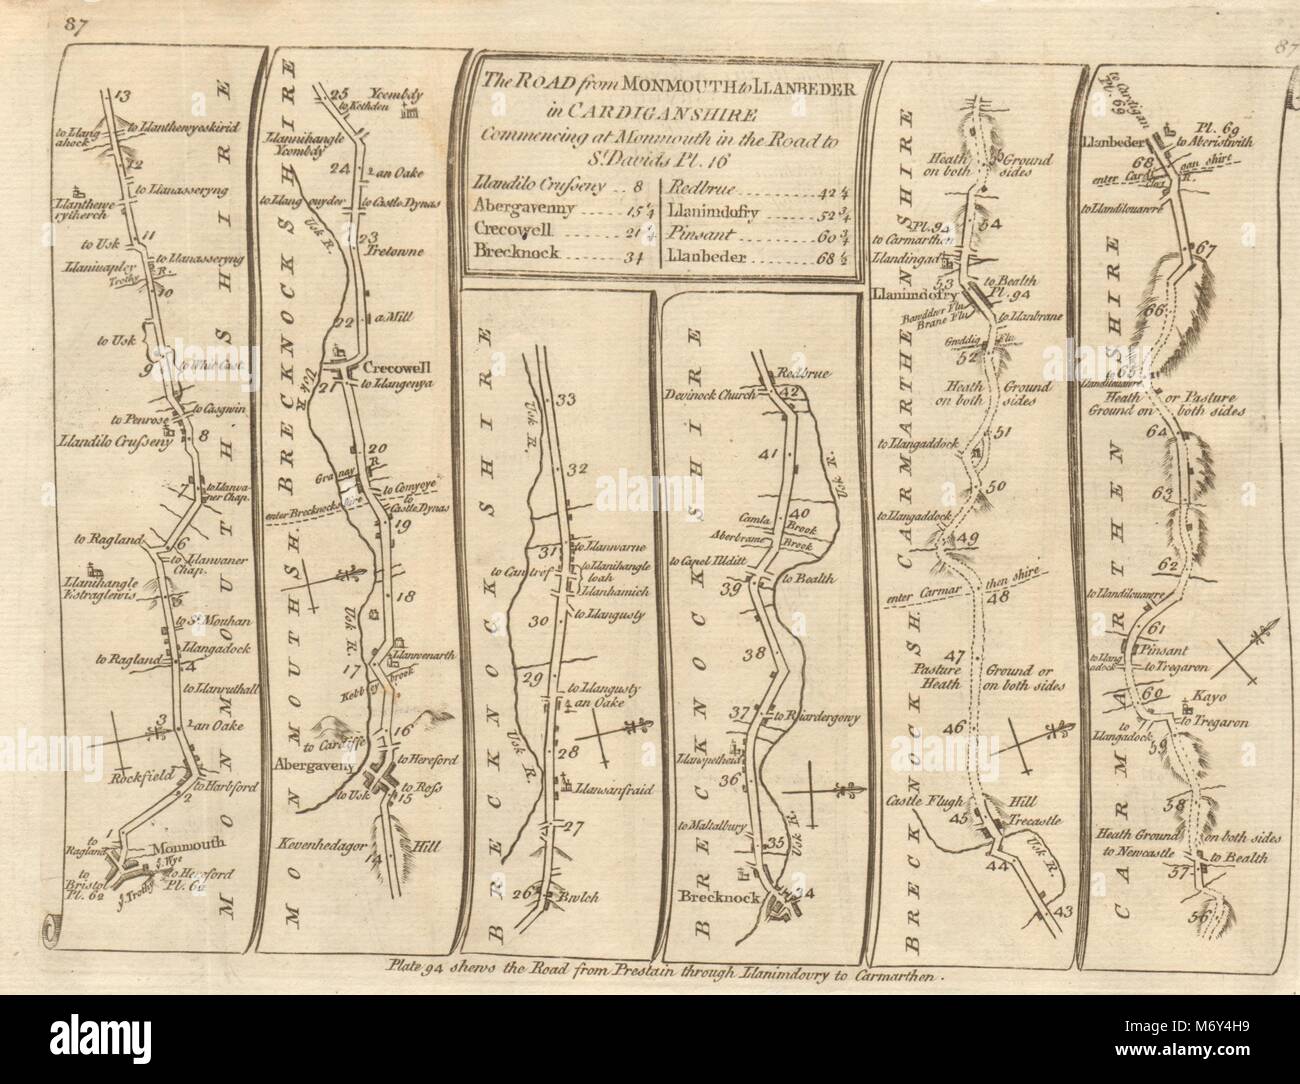 87
87
The ROAD from MONMOUTH to LLANBEDER
in CARDIGANSHIRE
Commencing at Monmouth in the Road to
St. Davids Pl. 16
Llandilo Crusseny .. 8
Abergavenny ...... 15¼
Crecowell ........ 21¼
Brecknock ........ 34
Redbrue ........ 42¼
Llanimdofry ...... 52¾
Pinsant ........ 60¾
Llanbeder ...... 68½
MONMOUTHSHIRE
13
to Llang
ahock
to Llanthewyeskirid
12
to Llanasseryng
Llanthewe
rytherch
11
to Usk
to Llanasseryng
Llanivapley
Trothy R.
10
to Usk
9
to Whit Cast.
to Casgwin
to Penrose
Llandilo Crusseny
8
7
to Llanva
ner Chap.
to Ragland
6
to Llanvaner
Chap.
Llanihangle
Estraglewis
to St. Mouhan
Llangadock
to Ragland
4
to Llanruthall
3
an Oake
Rockfield
to Harbford
2
1
to
Ragland
Monmouth
J. Wye
to Hereford
Pl. 62
to
Bristol
Pl. 62
J. Trothy
MONMOUTHSH. BRECKNOCKSHIRE
25
to Kethden
Ycembdy
Llannihangle
Ycembdy
24
an Oake
to Llangouyder
to Castle Dynas
Usk R.
23
Tretowne
22
a Mill
Crecowell
21
to Llangenya
Usk R.
20
Granay R.
to Comyoye
to
Castle Dynas
enter Brecknockshire
19
18
Usk R.
Llanwenarth
17
Kebby brook
16
to Cardiffe
Abergaveny
to Hereford
to Usk
to Ross
15
Kevenhedagor
14
Hill
BRECKNOCKSHIRE
33
Usk R.
32
31
to Llanvarne
to Cantref
to Llanihangle
Llanhamich
30
to Llangusty
29
to Llangusty
an Oake
Usk R.
28
Llansanfraid
27
26
Bwlch
BRECKNOCKSHIRE
Redbrue
Devinock Church
42
41
Usk R.
40
Camla Brook
Aberbrane Brook
to Capel Ilditt
39
to Bealth
38
37
to Riardergowy
Llanspetheid
36
to Maltalbury
35
Usk R.
Brecknock
34
BRECKNOCKSH. CARMARTHENSHIRE
55
Heath Ground
on both sides
54
Pl. 94
to Carmarthen
Llandingad
53
to Bealth
Pl. 94
Llanimdofry
Brane Flu
to Llanbrane
Flu
52
Heath Ground
on both sides
51
to Llangaddock
50
to Llangaddock
49
enter Carmar then shire
48
47
Pasture Ground or
Heath on both sides
46
Castle Flugh
Hill
Trecastle
45
Usk R.
44
43
CARMARTHENSHIRE
to Cardigan
Pl. 69
Llanbeder
Pl. 69
to Aberistwith
68
enter Cardi gan shire
R.
to Llandilouavre
67
66
65
Llandilouavre
Heath or Pasture
Ground on both sides
64
63
62
to Llandilouavre
61
Pinsant
to Llang
adock
to Tregaron
60
Kayo
to Tregaron
to
Llangadock
59
58
Heath Ground on both sides
to Newcastle
to Bealth
57
56
Plate 94 shews the Road from Prestain through Llanimdovry to Carmarthen.
alamy
alamy
M6Y4H9
www.alamy.com